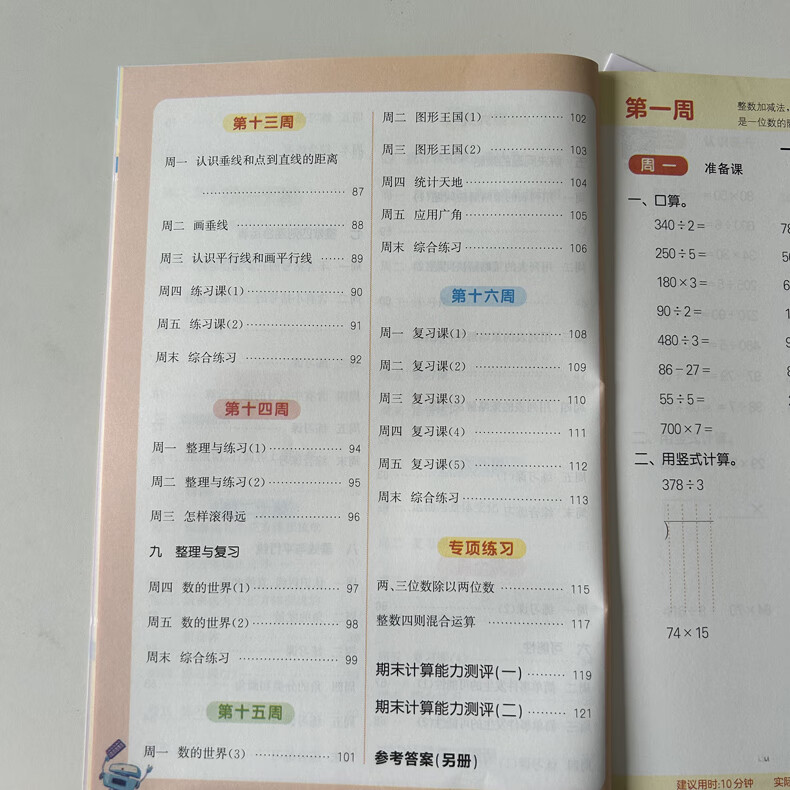 第十三周
周一 认识垂线和点到直线的距离
…………………… 87
周二 画垂线 …………………… 88
周三 认识平行线和画平行线 …… 89
周四 练习课(1) ………………… 90
周五 练习课(2) ………………… 91
周末 综合练习 ………………… 92
第十四周
周一 整理与练习(1) …………… 94
周二 整理与练习(2) …………… 95
周三 怎样滚得远 ……………… 96
九 整理与复习
周四 数的世界(1) ……………… 97
周五 数的世界(2) ……………… 98
周末 综合练习 ………………… 99
第十五周
周一 数的世界(3) ……………… 101
周二 图形王国(1) ……………… 102
周三 图形王国(2) ……………… 103
周四 统计天地 ………………… 104
周五 应用广角 ………………… 105
周末 综合练习 ………………… 106
第十六周
周一 复习课(1) ………………… 108
周二 复习课(2) ………………… 109
周三 复习课(3) ………………… 110
周四 复习课(4) ………………… 111
周五 复习课(5) ………………… 112
周末 综合练习 ………………… 113
专项练习
两、三位数除以两位数 ………… 115
整数四则混合运算 …………… 117
期末计算能力测评(一) ……… 119
期末计算能力测评(二) ……… 121
参考答案(另册)
第一周
整数加减法,
是一位数的
周一 准备课
一、口算。
340÷2=
250÷5=
180×3=
90÷2=
480÷3=
86-27=
55÷5=
700×7=
二、用竖式计算。
378÷3
74×15
建议用时:10分钟
实际